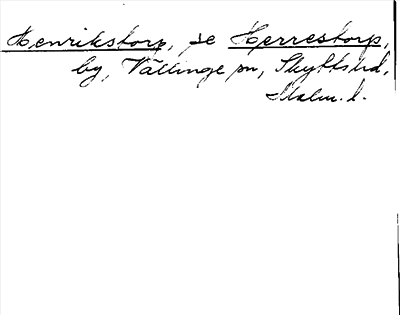 Henrikstorp, se Herrestorp,
by, Vällinge sn, Skyttshd,
Malm. l.